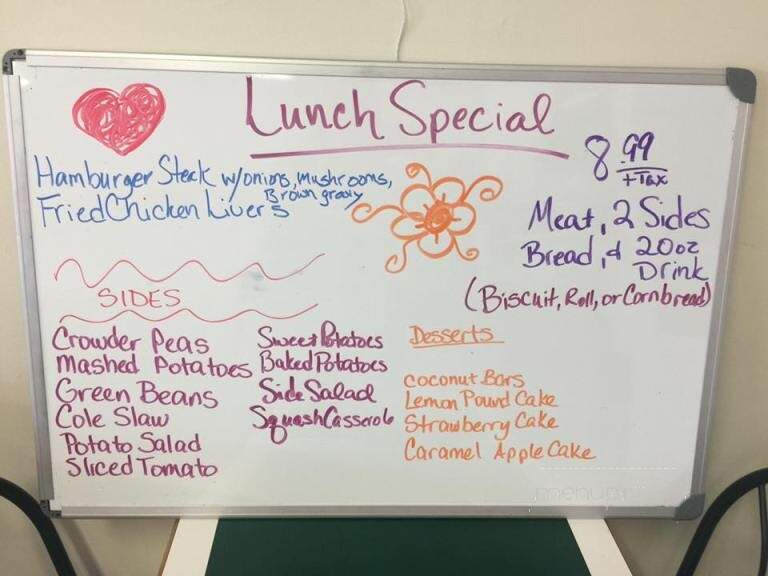 Lunch Special
8.99
+Tax
Hamburger Steak w/onions, mushrooms,
Brown gravy
Fried Chicken Livers
Meat, 2 Sides
Bread, & 20oz
Drink
(Biscuit, Roll, or Cornbread)
SIDES
Crowder Peas
Mashed Potatoes
Green Beans
Cole Slaw
Potato Salad
Sliced Tomato
Sweet Potatoes
Baked Potatoes
Side Salad
Squash Casserole
Desserts
Coconut Bars
Lemon Pound Cake
Strawberry Cake
Caramel Apple Cake